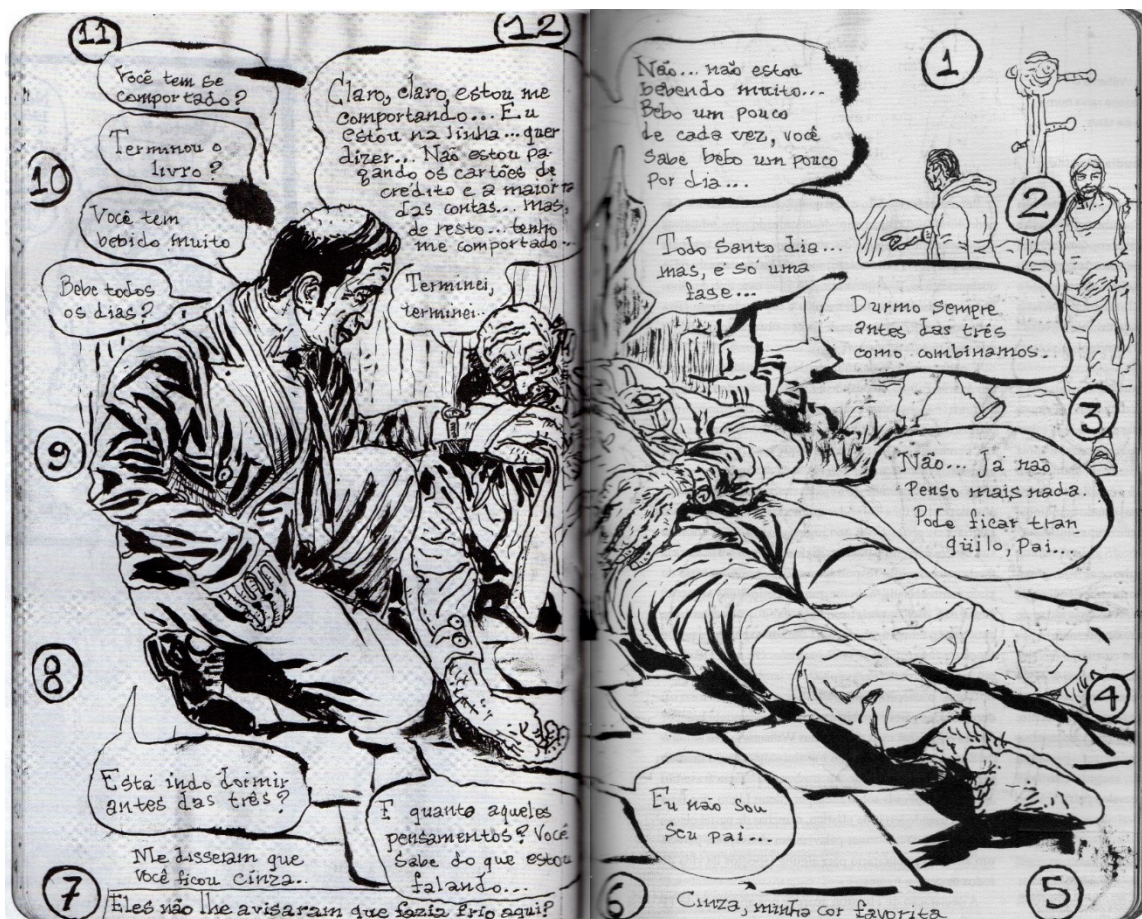 11
Você tem se
comportado?
Terminou o
livro?
10
Você tem
bebido muito
Bebe todos
os dias?
12
Claro, claro estou me
comportando... Eu
estou na linha... quer
dizer... Não estou pa-
gando os cartões de
crédito e a maioria
das contas... mas,
de resto... tenho
me comportado...
Terminei,
terminei...
9
8
Está indo dormir
antes das três?
E quanto aqueles
pensamentos? Você
Sabe do que estou
falando...
Me disseram que
você ficou cinza..
7
Eles não lhe avisaram que fazia frio aqui?
Não... não estou
bebendo muito...
Bebo um pouco
de cada vez, você
sabe bebo um pouco
por dia...
1
2
Todo Santo dia...
mas, é só uma
fase...
Durmo sempre
antes das três
como combinamos.
3
Não... Já não
Penso mais nada.
Pode ficar tran
qüilo, pai...
4
Eu não sou
Seu pai...
6
Cinza, minha cor favorita
5